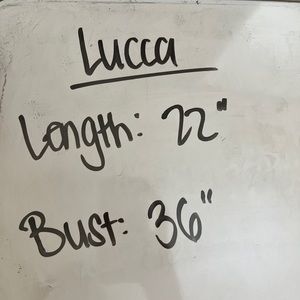 Lucca
Length: 22"
Bust: 36"